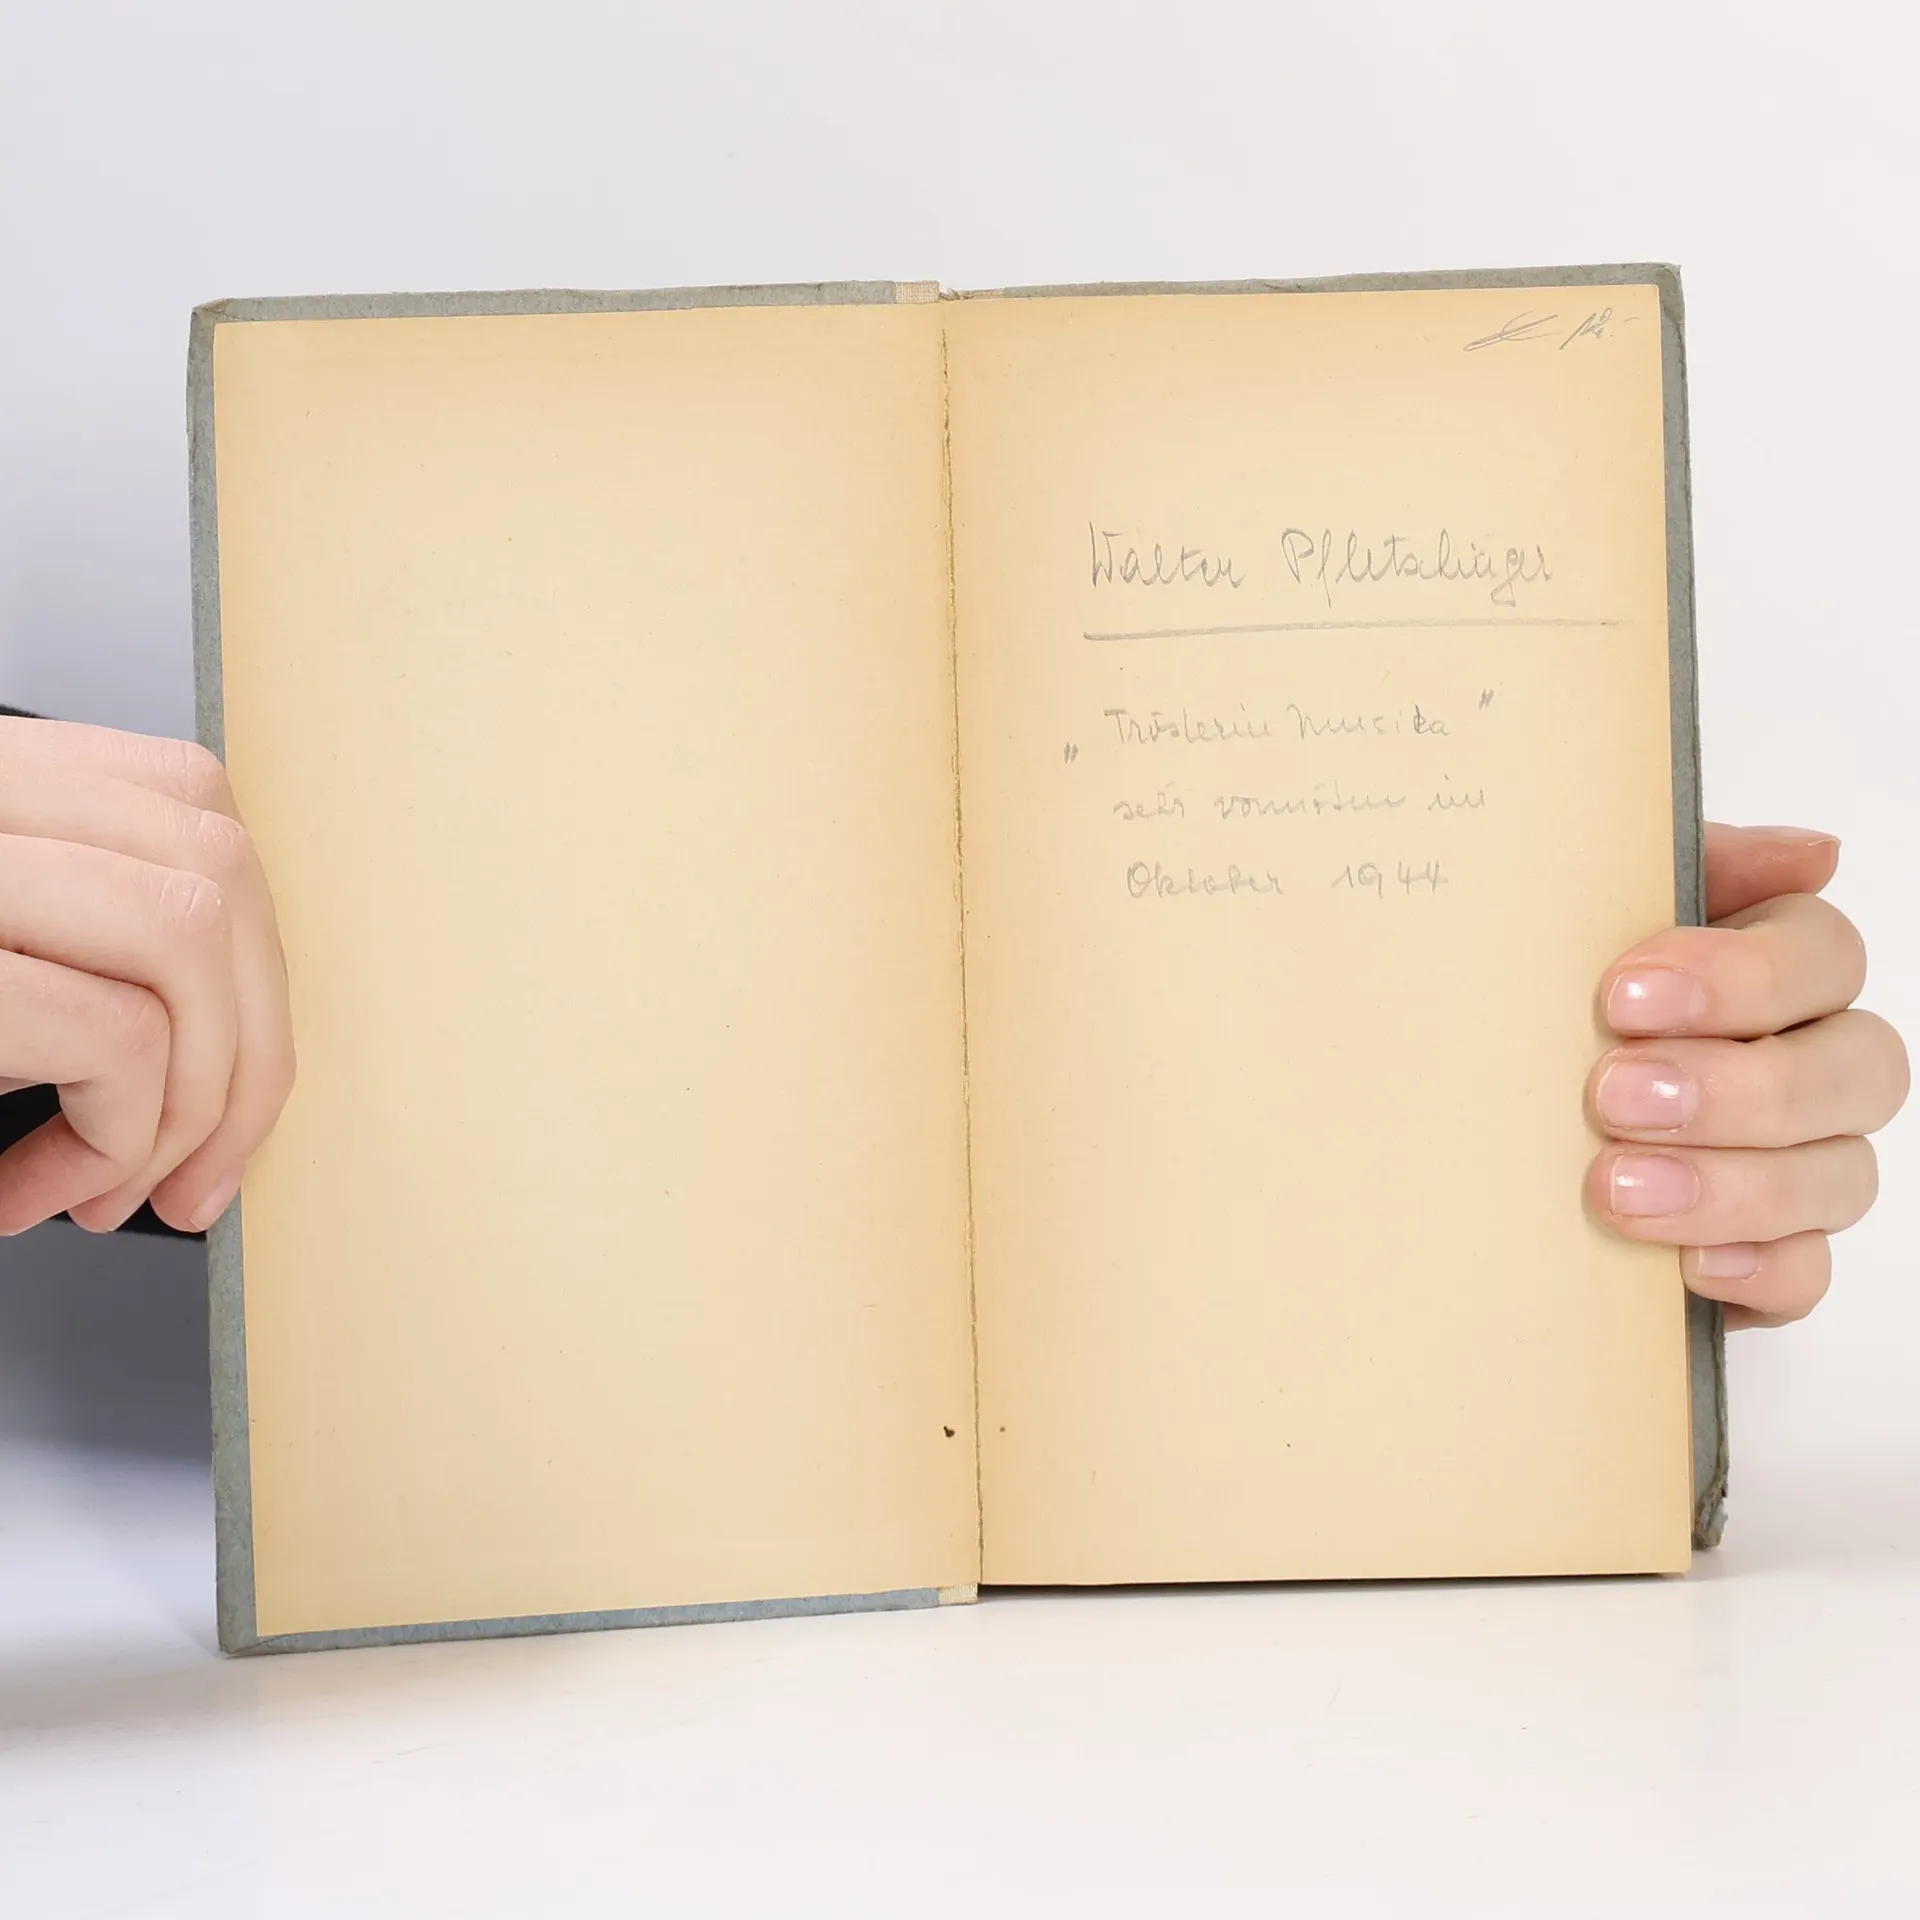 Walter Pfletschinger
„Trösterin Musika"
sehr vonnöten im
Oktober 1944